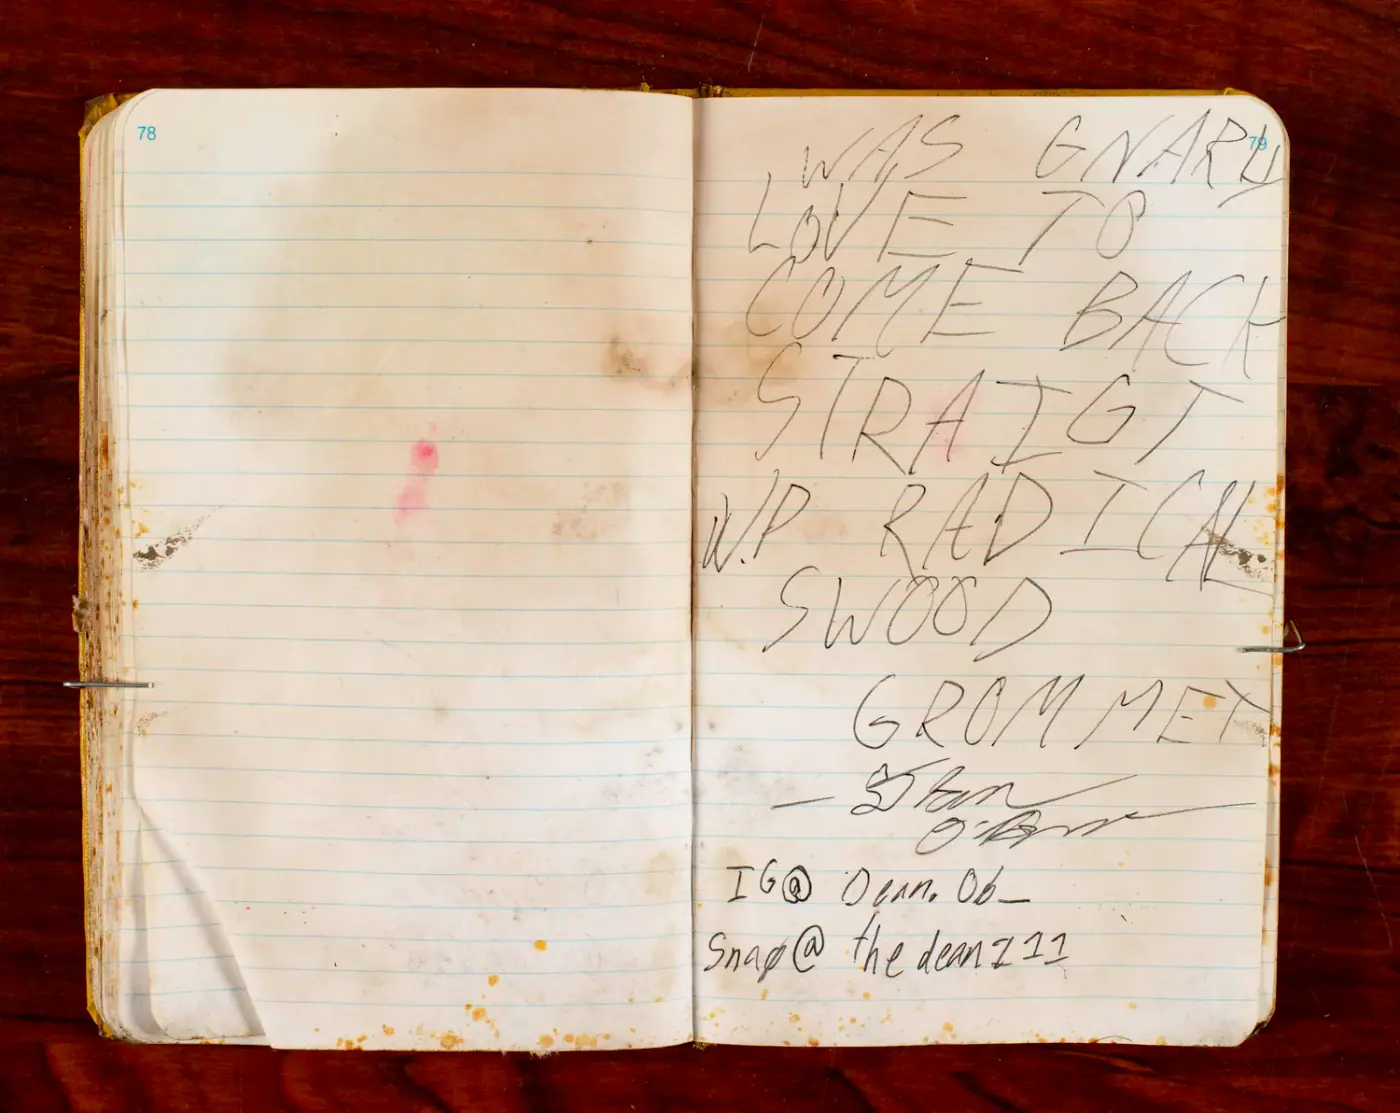 78
79
WAS GNARLY
LOVE TO
COME BACK
STRAIGT
W.P RADICAL
SWOOD
GROMMET
— Dean
O'
IG@ Dean.Ob_
Snap@ thedean111